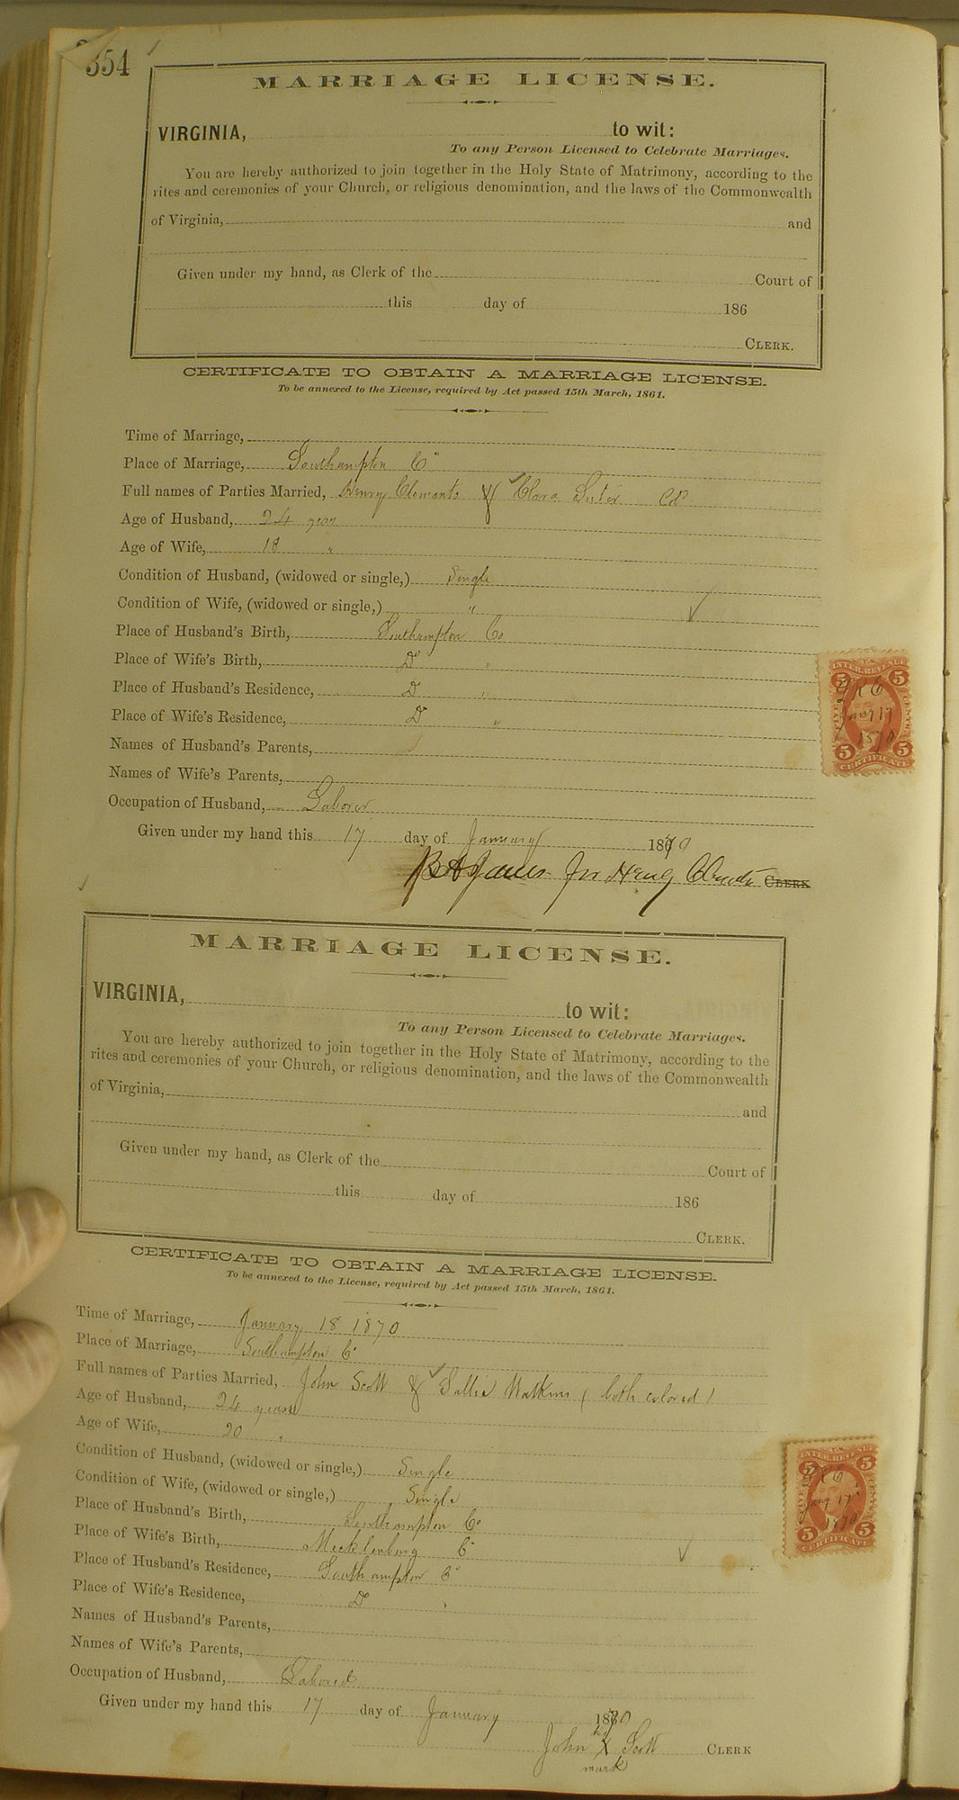 354
MARRIAGE LICENSE.
VIRGINIA, to wit:
To any Person Licensed to Celebrate Marriages.
You are hereby authorized to join together in the Holy State of Matrimony, according to the
rites and ceremonies of your Church, or religious denomination, and the laws of the Commonwealth
of Virginia, and
Given under my hand, as Clerk of the Court of
this day of 186
CLERK.
CERTIFICATE TO OBTAIN A MARRIAGE LICENSE.
To be annexed to the License, required by Act passed 15th March, 1861.
Time of Marriage,
Place of Marriage, Southampton Co
Full names of Parties Married, Henry Clements & Clara Cold
Age of Husband, 24 years
Age of Wife, 18 "
Condition of Husband, (widowed or single,) Single
Condition of Wife, (widowed or single,) "
Place of Husband's Birth, Southampton Co
Place of Wife's Birth, Do "
Place of Husband's Residence, Do "
Place of Wife's Residence, Do "
Names of Husband's Parents,
Names of Wife's Parents,
Occupation of Husband, Laborer
Given under my hand this 17 day of January 1870
for Henry Clements CLERK
INTER. REVENUE
5 5
Jany 17
1870
5 5
CERTIFICATE
MARRIAGE LICENSE.
VIRGINIA, to wit:
To any Person Licensed to Celebrate Marriages.
You are hereby authorized to join together in the Holy State of Matrimony, according to the
rites and ceremonies of your Church, or religious denomination, and the laws of the Commonwealth
of Virginia, and
Given under my hand, as Clerk of the Court of
this day of 186
CLERK.
CERTIFICATE TO OBTAIN A MARRIAGE LICENSE.
To be annexed to the License, required by Act passed 15th March, 1861.
Time of Marriage, January 18 1870
Place of Marriage, Southampton Co
Full names of Parties Married, John Scott & Sallie Watkins (both colored)
Age of Husband, 24 years
Age of Wife, 20 "
Condition of Husband, (widowed or single,) Single
Condition of Wife, (widowed or single,) Single
Place of Husband's Birth, Southampton Co
Place of Wife's Birth, Mecklenburg Co
Place of Husband's Residence, Southampton Co
Place of Wife's Residence, Do "
Names of Husband's Parents,
Names of Wife's Parents,
Occupation of Husband, Laborer
Given under my hand this 17 day of January 1870
his
John X Scott CLERK
mark
INTER. REVENUE
5 5
Jany 17
1870
5 5
CERTIFICATE